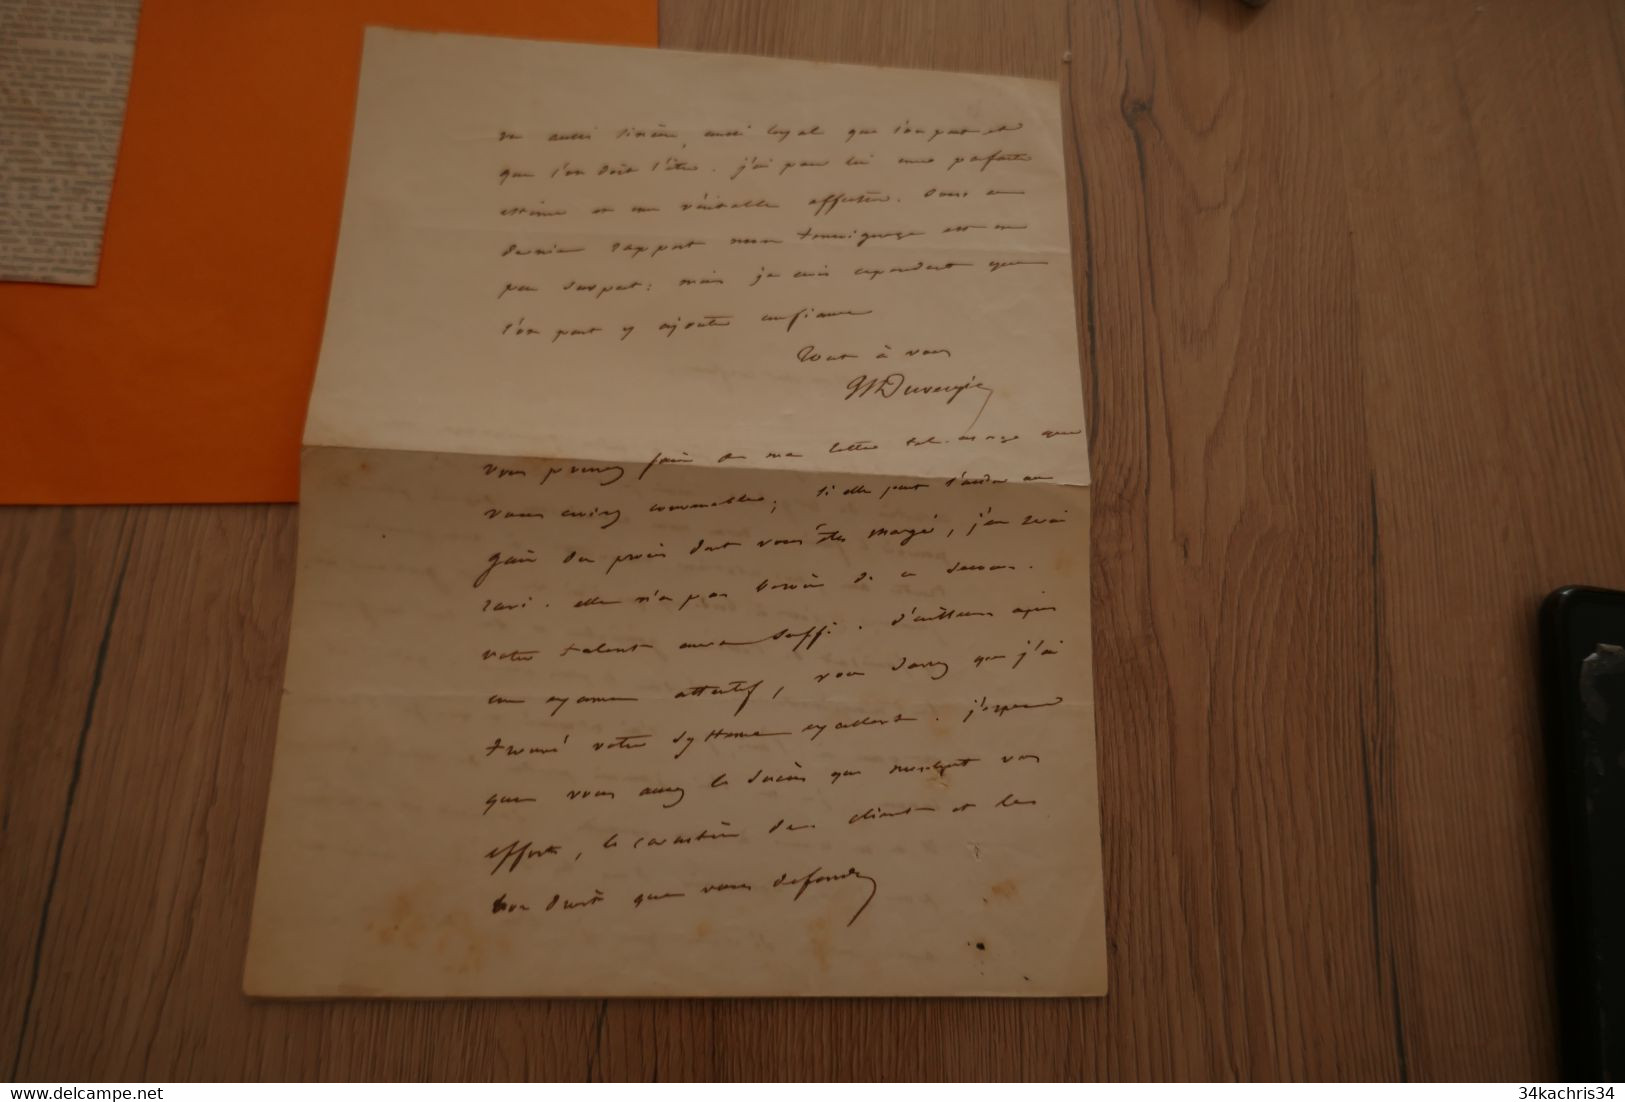 aussi sincère, aussi loyal que l'on peut et
que l'on doit l'être. j'ai pour lui une parfaite
estime et une véritable affection. Sous ce
dernier rapport mon témoignage est un
peu suspect: mais je crois cependant que
l'on peut y ajouter confiance
Tout à vous
Duvergier
vous pouvez faire de ma lettre tel usage que
vous croirez convenable; si elle peut l'aider au
gain du procès dont vous êtes chargé, j'en serai
ravi. elle n'a pas besoin de ce secours.
votre talent aura suffi. d'ailleurs après
un examen attentif, vous savez que j'ai
trouvé votre système excellent. j'espère
que vous aurez le succès que méritent vos
efforts, le caractère des clients et le
bon droit que vous défendez
www.delcampe.net
34kachris34